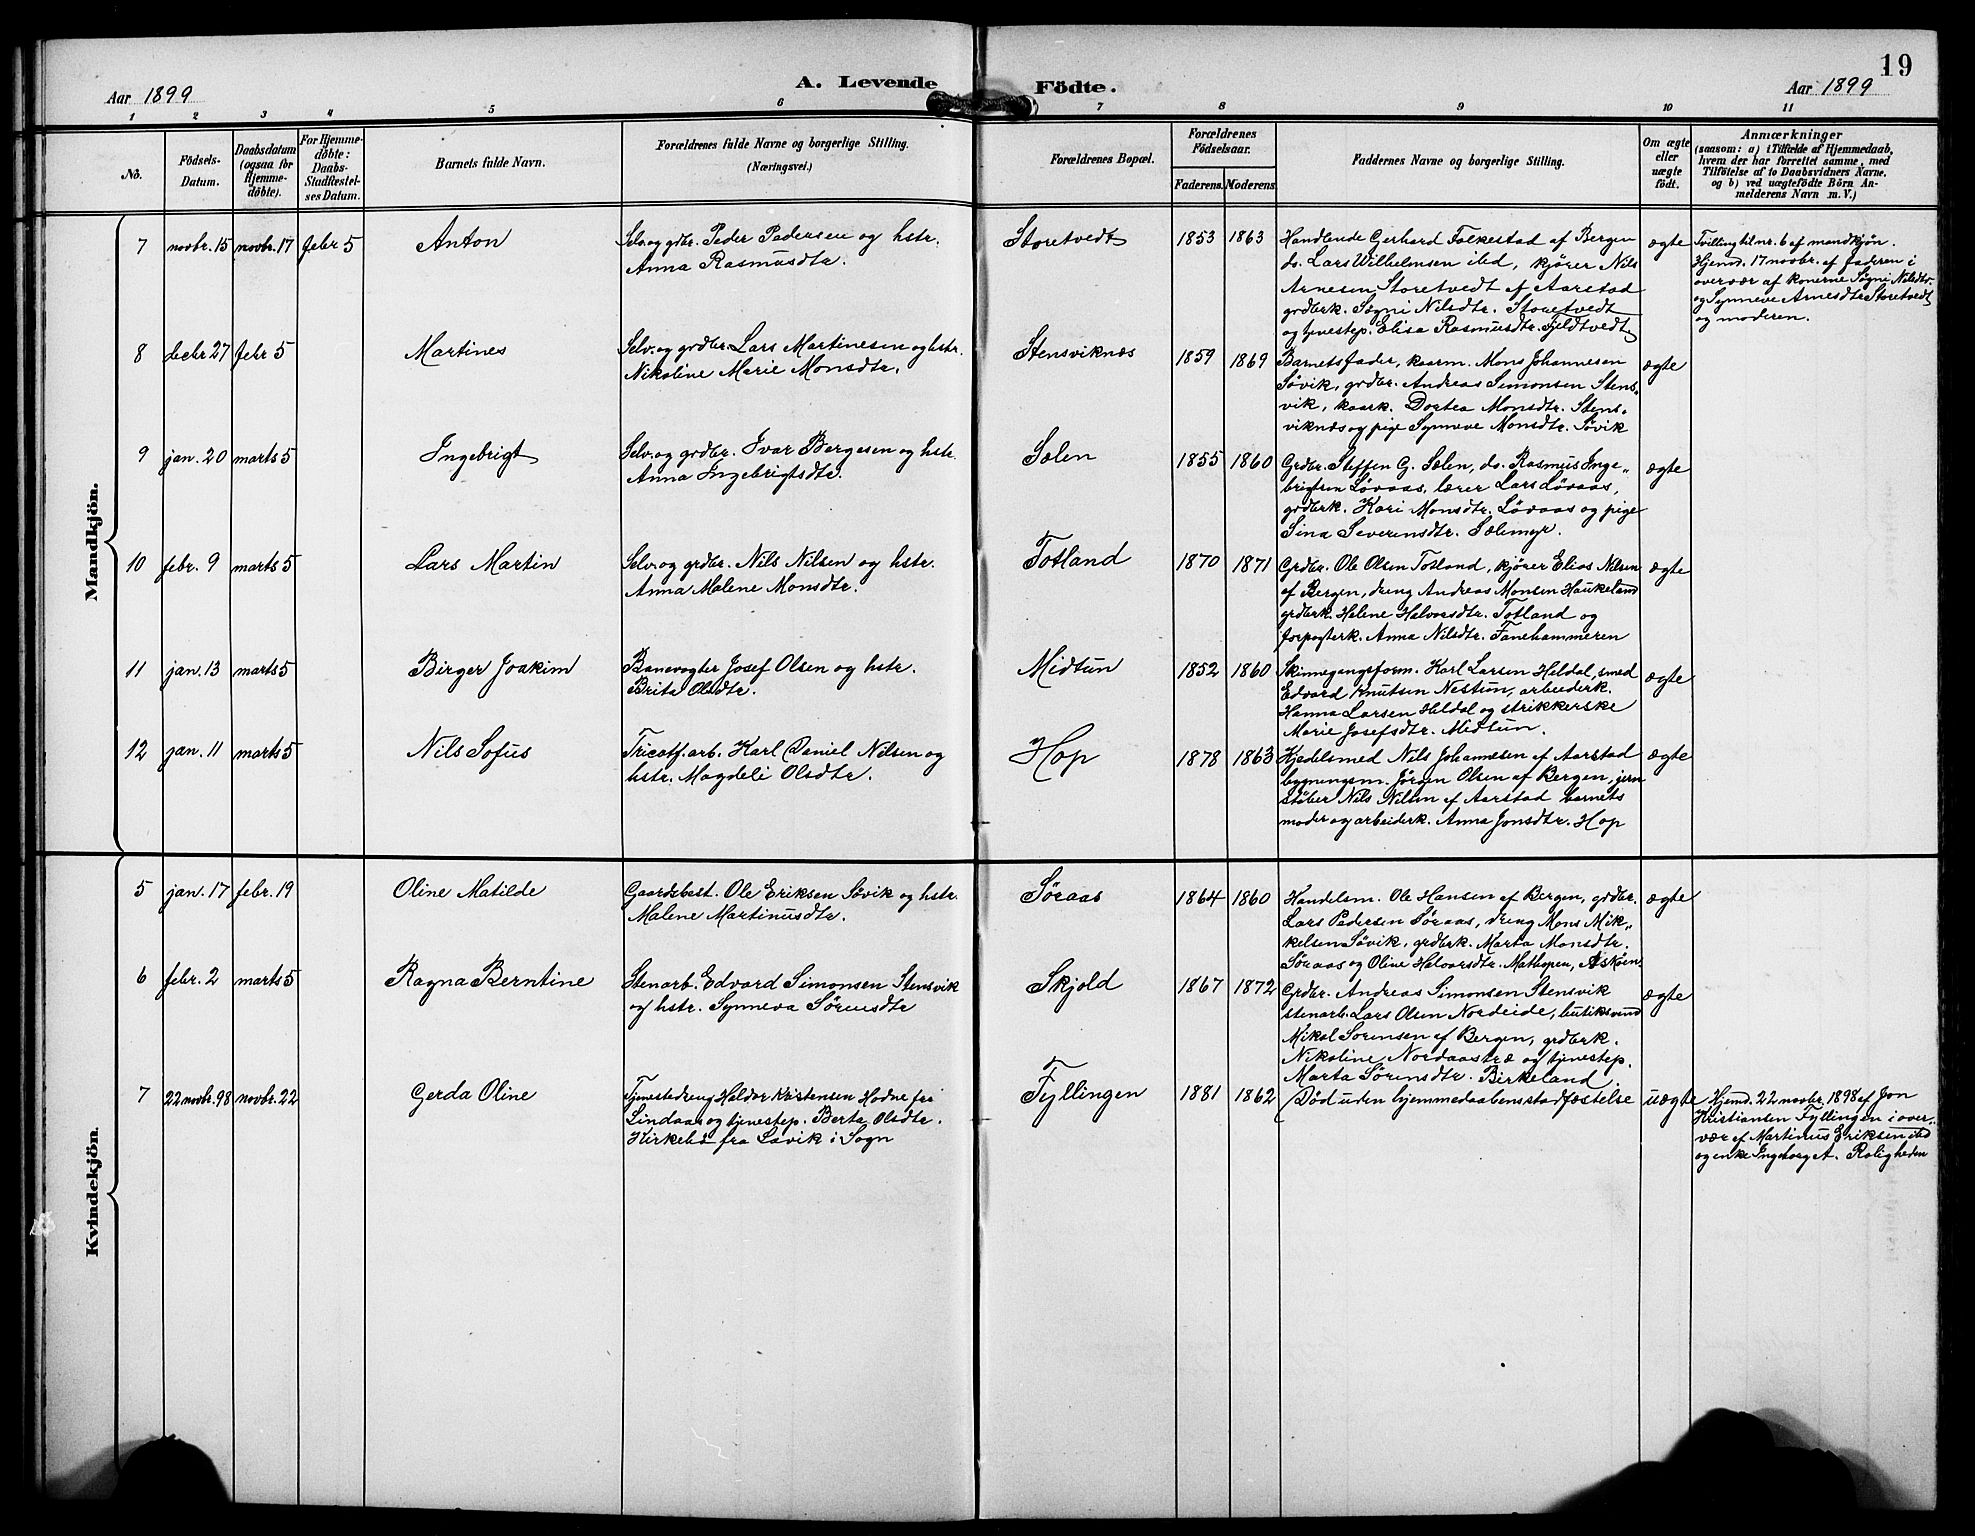 19
A. Levende Födte.
Aar 1899
Aar 1899
1 2 3 4 5 6 7 8 9 10 11
No.
Födsels-Datum.
Daabsdatum (ogsaa for Hjemme-döbte).
For Hjemme-döbte: Daabs-Stadfæstel-ses Datum.
Barnets fulde Navn.
Forældrenes fulde Navne og borgerlige Stilling.
(Næringsvei.)
Forældrenes Bopæl.
Forældrenes Födselsaar.
Faderens. Moderens.
Faddernes Navne og borgerlige Stilling.
Om ægte eller uægte födt.
Anmærkninger
(saasom: a) i Tilfælde af Hjemmedaab,
hvem der har forrettet samme, med
Tilföielse af to Daabsvidners Navne.
og b) ved uægtefödte Börn An-
melderens Navn m. V.)
Mandkjön.
7 novbr. 15 novbr. 17 febr 5 Anton
Selv. og grdbr. Peder Pedersen og hstr.
Anna Rasmusdtr.
Storetvedt 1853 1863
Handlende Gerhard Falkestad af Bergen
do. Lars Wilhelmsen ibd, kjører Nils
Arnesen Storetvedt af Aarstad
grdbrk. Søgni Nilsdtr. Storetvedt
og tjenestep. Elisa Rasmusdtr. Fjeldtvedt
ægte
Tvilling til nr. 6 af mandkjøn.
Hjemd. 17 novbr. af faderen i
overvær af konerne Søgni Nilsdtr.
og Synneve Arnesdtr Storetvedt
og moderen.
8 decbr 27 febr 5 Martines
Selv. og grdbr. Lars Martinesen og hstr.
Nikoline Marie Monsdtr.
Stensviknæs 1859 1869
Barnets fader, kaarm. Mons Johannesen
Søvik, grdbr. Andreas Simonsen Stens-
vik, kaark. Dortea Monsdtr. Stens-
viknæs og pige Synneve Monsdtr. Søvik
ægte
9 jan. 20 marts 5 Ingebrigt
Selv. og grdbr. Ivar Børgesen og hstr.
Anna Ingebrigtsdtr.
Sælen 1855 1860
Grdbr. Steffen G. Sælen, do. Rasmus Inge-
brigtsen Løvaas, lærer Lars Løvaas,
grdbrk. Kari Monsdtr. Løvaas og pige
Sina Severinsdtr. Sælemyr.
ægte
10 febr. 9 marts 5 Lars Martin
Selv. og grdbr. Nils Nilsen og hstr.
Anna Malene Monsdtr.
Totland 1870 1871
Grdbr. Ole Olsen Totland, kjører Elias Nilsen
af Bergen, dreng Andreas Monsen Haukeland
grdbrk. Helene Halvorsdtr. Totland og
forpagterk. Anna Nilsdtr. Fanehammeren
ægte
11 jan. 13 marts 5 Birger Joakim
Banevogter Josef Olsen og hstr.
Brita Olsdtr.
Midtun 1852 1860
Skinnegangsform. Karl Larsen Heldal, smed
Edvard Knutsen Nestun, arbeiderk.
Hanna Larsen Heldal og strikkerske
Marie Josefsdtr. Midtun.
ægte
12 jan. 11 marts 5 Nils Sofus
Tricotf.arb. Karl Daniel Nilsen og
hstr. Magdeli Olsdtr.
Hop 1878 1863
Kjedelsmed Nils Johannesen af Aarstad
bygningsm. Jörgen Olsen af Bergen, jern
støber Nils Nilsen af Aarstad barnets
moder og arbeiderk. Anna Jonsdtr. Hop
ægte
Kvindekjön.
5 jan. 17 febr. 19 Oline Matilde
Gaardsbest. Ole Eriksen Søvik og hstr.
Malene Martinusdtr.
Søraas 1864 1860
Handelsm. Ole Hansen af Bergen, grdbr.
Lars Pedersen Søraas, dreng Mons Mik-
kelsen Søvik, grdbrk. Marta Monsdtr.
Søraas og Oline Halvorsdtr. Mathopen, Askøen.
ægte
6 febr. 2 marts 5 Ragna Berntine
Stenarb. Edvard Simonsen Stensvik
og hstr. Synneva Sørensdtr
Skjold 1867 1872
Grdbr. Andreas Simonsen Stensvik
stenarb. Lars Olsen Nordeide, butiksvend
Mikal Sørensen af Bergen, grdbrk.
Nikoline Nordaastræ og tjenestep.
Marta Sørensdtr. Birkeland.
ægte
7 22 novbr. 98 novbr. 22 Gerda Oline
Tjenestedreng Haldor Kristensen Hodne fra
Lindaas og tjenestep. Berta Olsdtr.
Kirkebø fra Lavik i Sogn
Fyllingen 1881 1862
Død uden hjemmedaabens stadfæstelse
uægte
Hjemd. 22 novbr. 1898 af Jon
Kristiansen Fyllingen i over-
vær af Martinus Eriksen ibd
og enke Ingeborg A. Roligheden